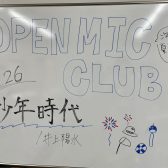 OPEN MIC
CLUB
26
少年時代
井上陽水